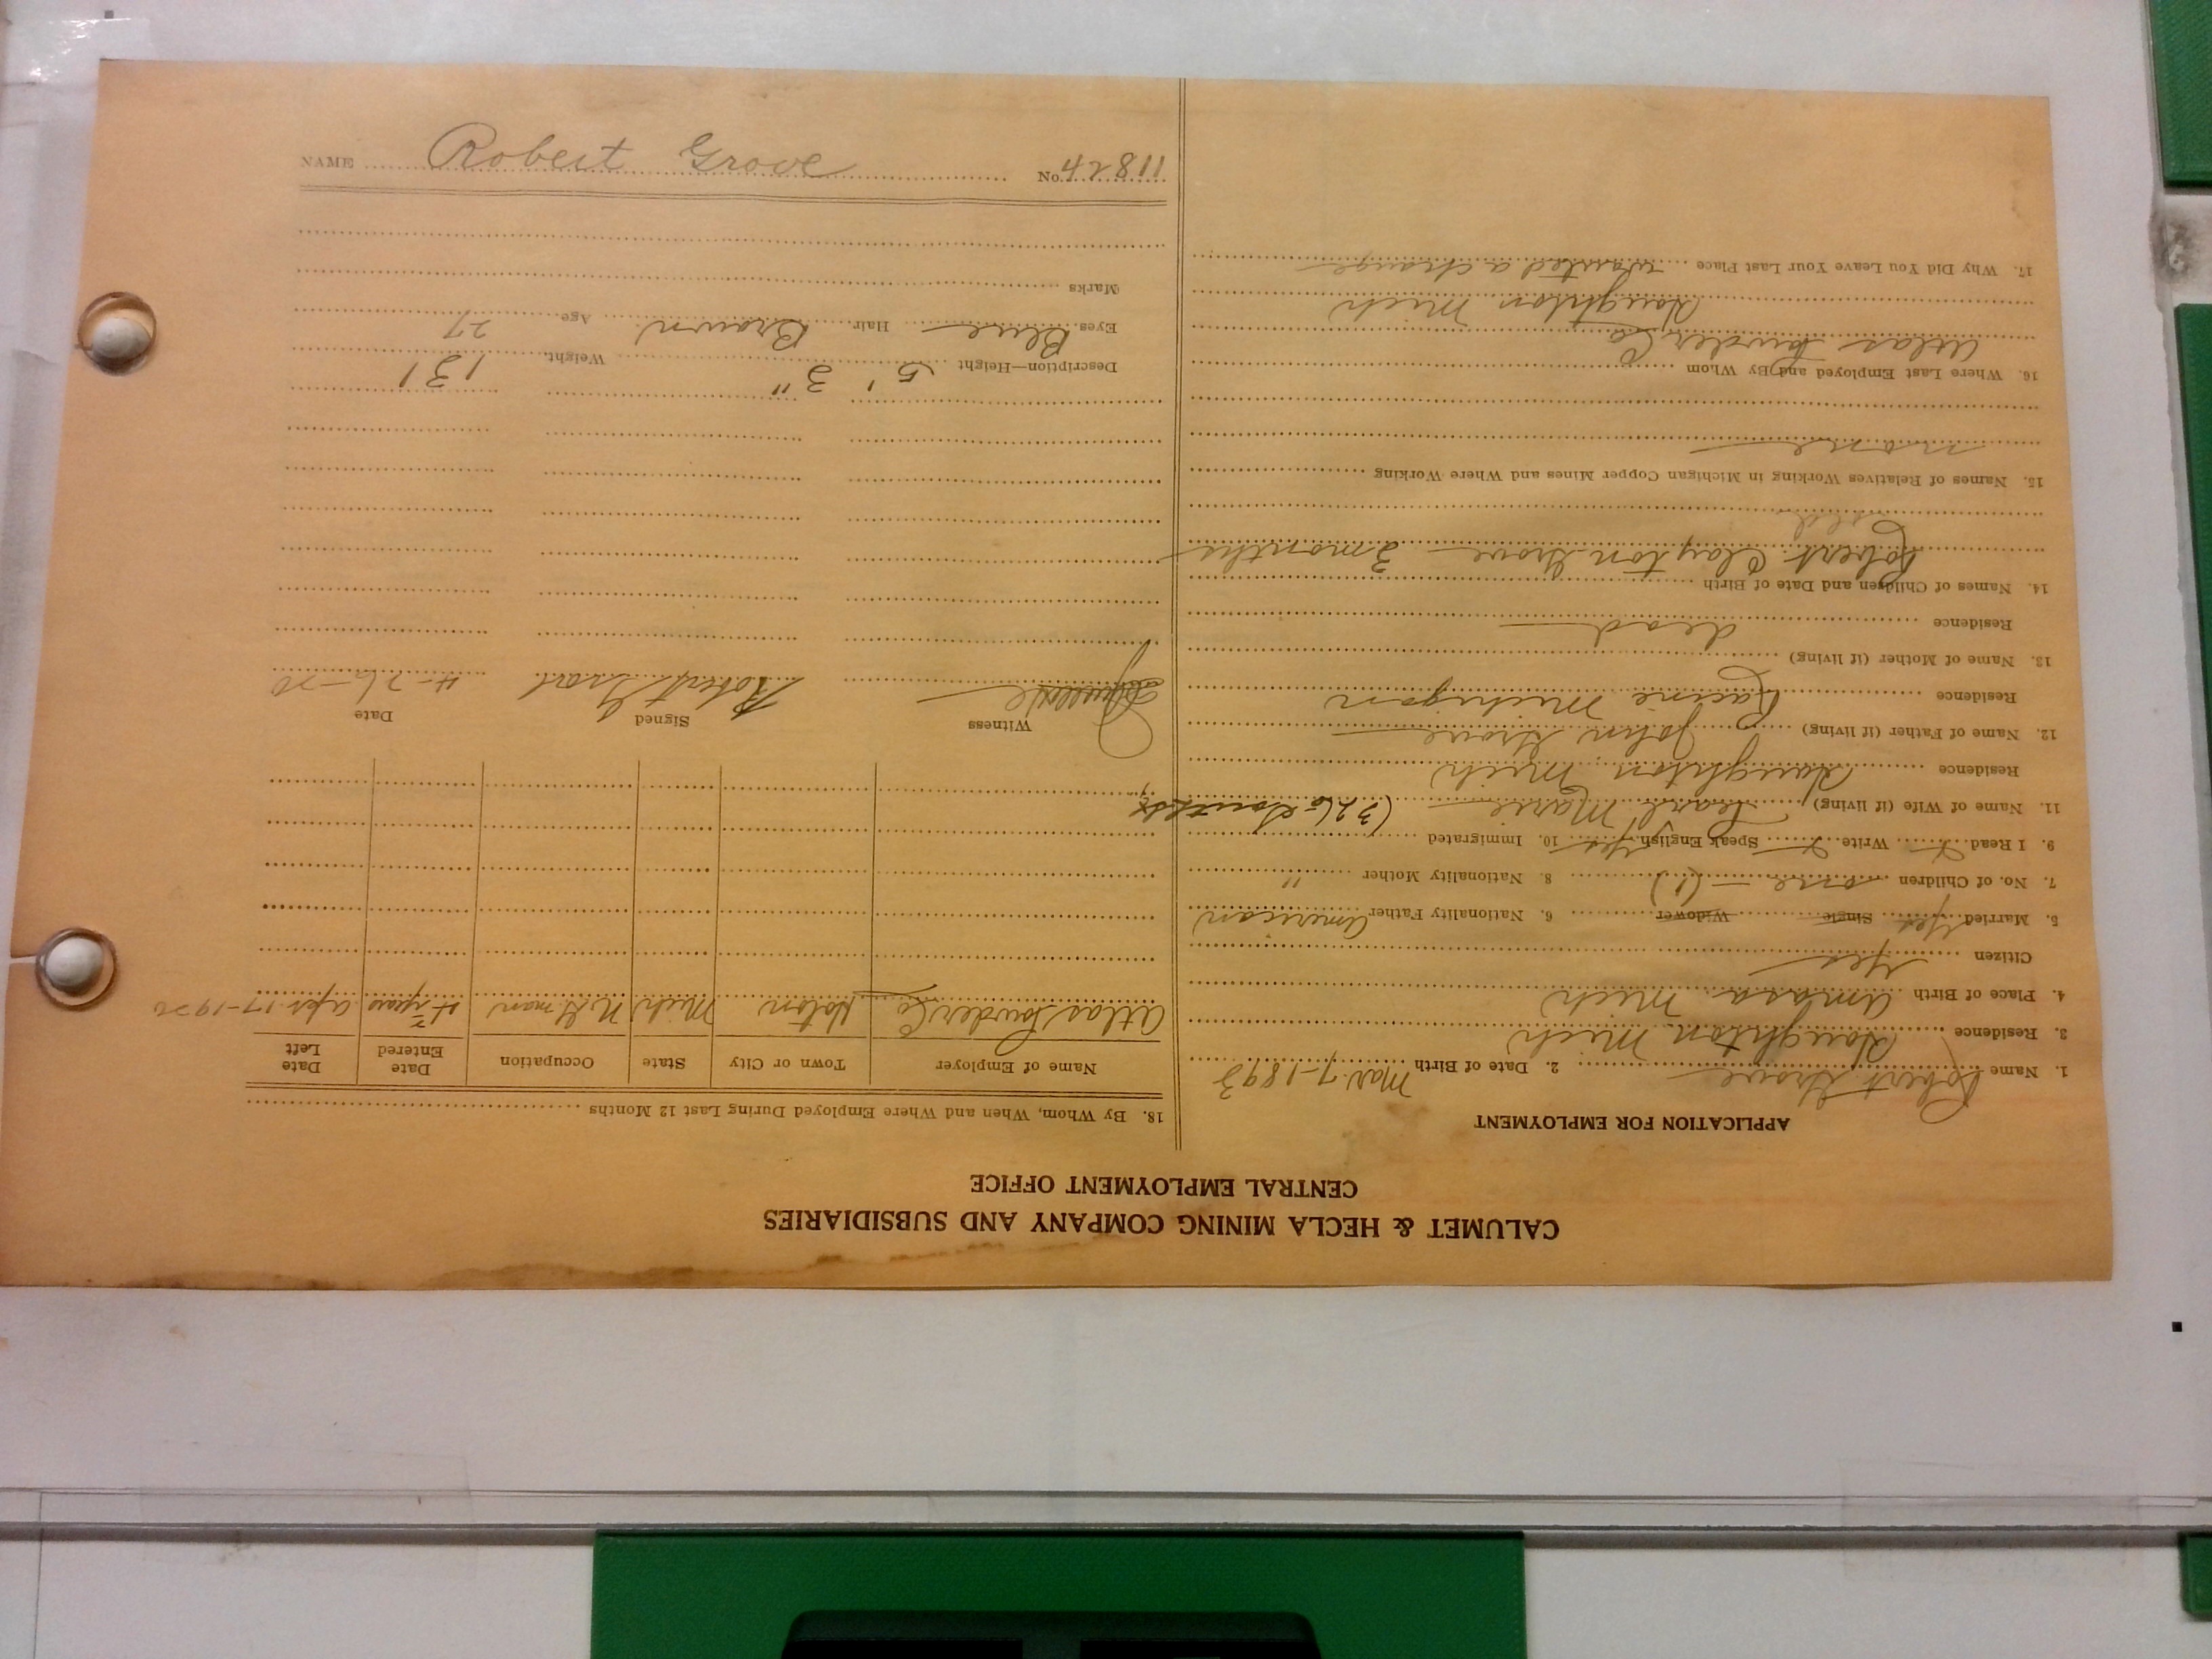 CALUMET & HECLA MINING COMPANY AND SUBSIDIARIES
CENTRAL EMPLOYMENT OFFICE
APPLICATION FOR EMPLOYMENT
1. Name Robert Grove 2. Date of Birth Mar. 7-1893
3. Residence Houghton Mich
4. Place of Birth Amasa Mich
Citizen Yes
5. Married Yes Single Widower 6. Nationality Father American
7. No. of Children one - (1) 8. Nationality Mother "
9. I Read Write Speak English Yes 10. Immigrated
11. Name of Wife (if living) Pearl Marie (326
Residence Houghton Mich
12. Name of Father (if living) John Grove
Residence Racine Michigan
13. Name of Mother (if living)
Residence dead
14. Names of Children and Date of Birth
Robert Clayton Grove 3 months
15. Names of Relatives Working in Michigan Copper Mines and Where Working
none
16. Where Last Employed and By Whom
Atlas Powder Co
Houghton Mich
17. Why Did You Leave Your Last Place wanted a change
18. By Whom, When and Where Employed During Last 12 Months
Name of Employer Town or City State Occupation Date Entered Date Left
Atlas Powder Co Hoton Mich man Apr. 17-1920
Witness Signed Date
Robert 4-26-20
Description—Height 5' 3" Weight 131
Eyes Blue Hair Brown Age 27
Marks
NAME Robert Grove No. 42811